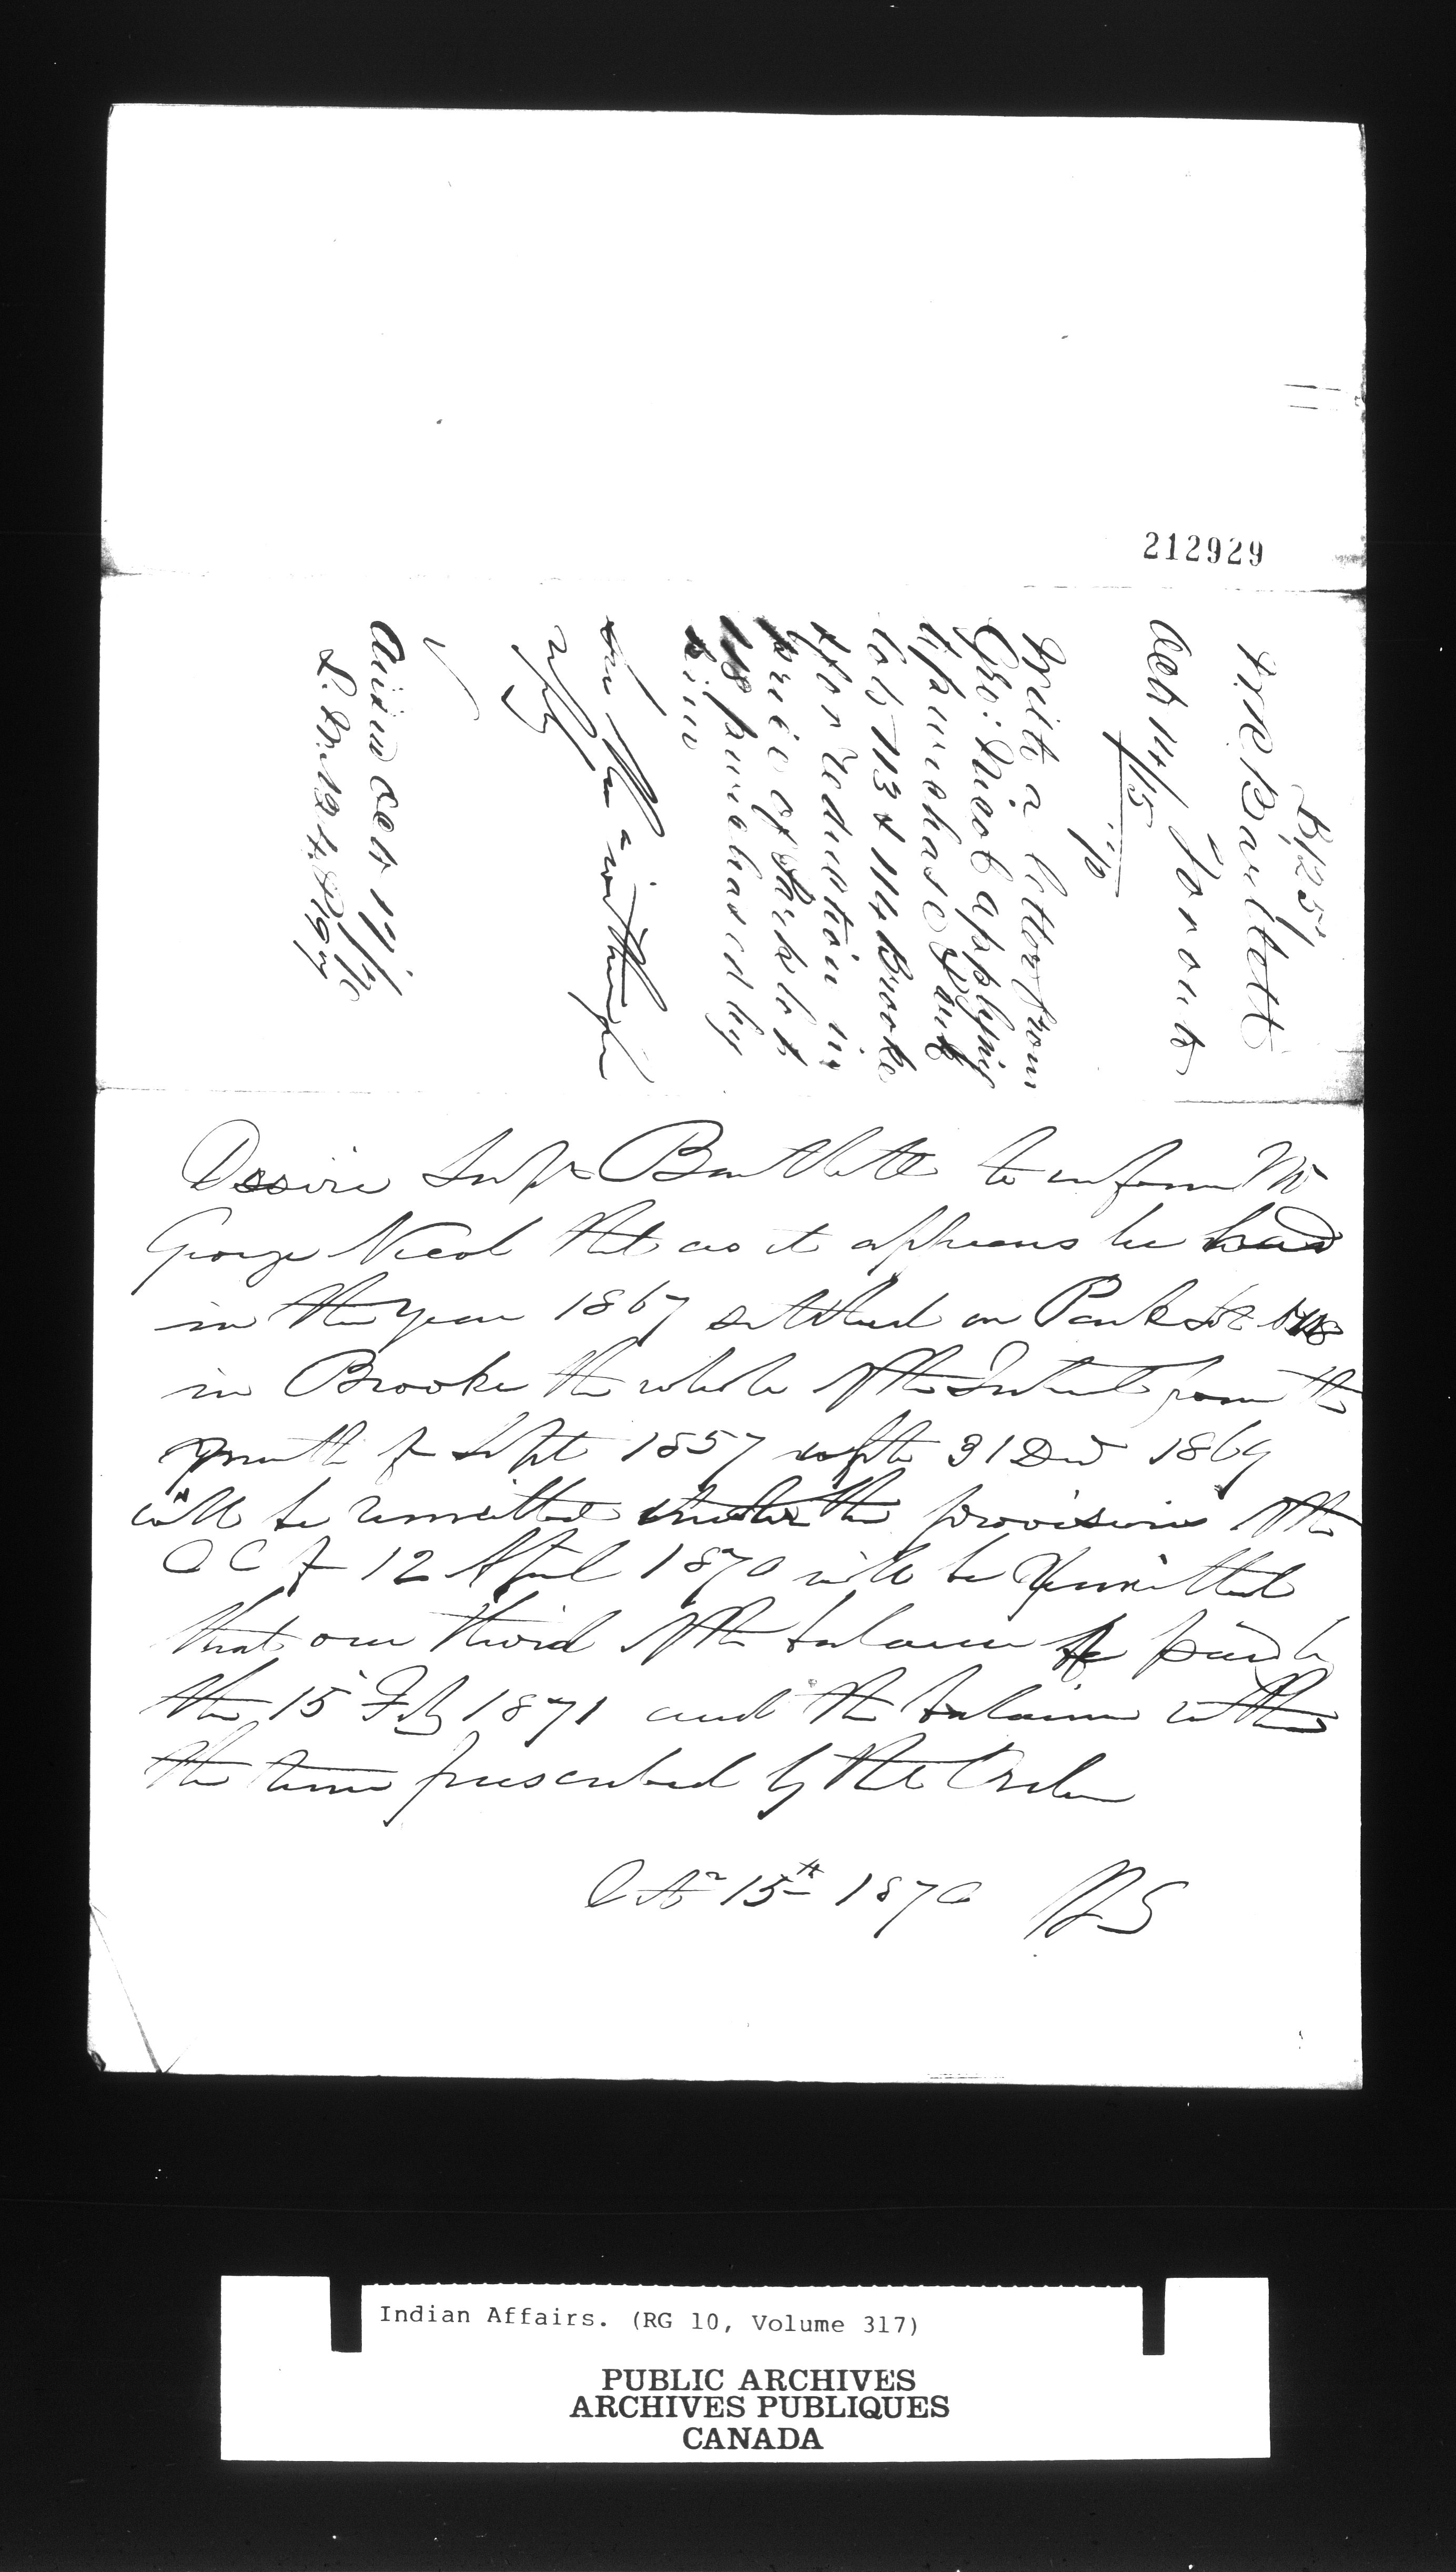 212929
B,125,
Bartlett
Oct 14/ Toronto
/15
10
Write a letter from
Geo: Nicol applying
to purchase Park
Lots 113 & 114 Brooke
& for reduction in
price of Park Lot
118 purchased by
him
within
Answd Oct 17/70
Desire Supt Bartlett to inform Mr
George Nicol that as it appears he had
in the year 1867 settled on Park Lot 118
in Brooke the whole of the Interest from the
month of Sept 1857 up to 31 Decr 1869
will be remitted under the provisions of the
O C of 12 April 1870 will be remitted
that one third of the balance be paid by
the 15 Feby 1871 and the balance within
the time prescribed by that Order
Octr 15th 1870
Indian Affairs. (RG 10, Volume 317)
PUBLIC ARCHIVES
ARCHIVES PUBLIQUES
CANADA